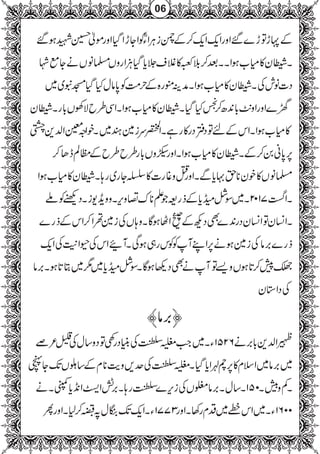 06
کے پہاڑ توڑے گئے اور ایک ایک کر کے چمن زہراء کو اجاڑا گیا اور مولی حسین شہید ہوگئے
۔ شیطان ۔ کامیاب ہوا ۔۔ بعد کر بلا کعبہ کا غلاف جلایا گیا ۔ ہزاروں مسلمانوں نے جامع شہا
دت نوش کی ۔ شیطان کامیاب ہوا ۔ مدینہ منورہ کی حرمت کو پامال کیا گیا ۔ مسجد نبوی میں
گھوڑے اور اونٹ باندھ کر نجس کیا گیا ۔ شیطان کامیاب ہوا ۔ اسی طرح لاکھوں بار ۔ شیطان
کامیاب ہوا ۔ اس کے لئے تو دفتر درکار ہے ۔ المختصر ۔ سرزمین ہند میں ۔ خواجہ معین الدین چشتی
پر پانی بند کر کے ۔ شیطان کامیاب ہوا ۔ اور سیکڑوں بار طرح طرح کے مظالم ڈھا کر
مسلمانوں کا خون ناحق بہایا گیا ۔ اور قتل و غارت کا سلسلہ جاری رہا ۔ شیطان کامیاب ہوا
۔ اگست ۲۰۱۷ میں ۔ سوشل میڈیا کے ذریعہ جو المناک تصاویر ۔ وڈیوز ۔ دیکھنے کو ملے
۔ انسان ۔ اور انسان تو درندے بھی دیکھ کے چیخ اٹھا ہوگا ۔ وہاں کی زمین تھرا کر اس کے ذرے
ذرے برما کی زمین ہونے پر اپنے آپ کو کوس رہی ہوگی ۔ آیئے ۔ اس کی حیوانیت کی ایک
جھلک پیش کرتا ہوں ویسے تو آپ نے بھی دیکھا ہوگا ۔ سوشل میڈیا میں مگر میں بتاتا ہوں ۔ برما
کی داستان
﴿ برما ﴾
ظہیر الدین بابر نے ۱۵۲۶ء ۔ میں ۔ جب مغلیہ سلطنت کی بنیاد رکھی تو دو سال کی قلیل عرصے
میں برما میں اسلام کا پرچم لہرایا گیا ۔ مغلیہ سلطنت کی حدیں ویتنام کے ساحلوں تک جا پہنچی
کم و بیش ۔ ۱۵۰ ۔ سال ۔ برما مغلوں کی زیر سلطنت رہا ۔ برٹش ایسٹ انڈیا کمپنی ۔ نے ۔
۱۶۰۰ء ۔ میں ۔ اس خطے میں قدم رکھا ۔ اور ۱۷۷۳ء ۔ تک بنگال پہ قبضہ کر لیا ۔ اور پھر